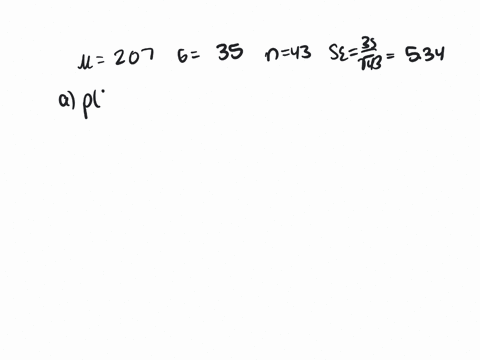 μ = 207 σ = 35 n=43 SE = 35/√43 = 5.34
a) p(